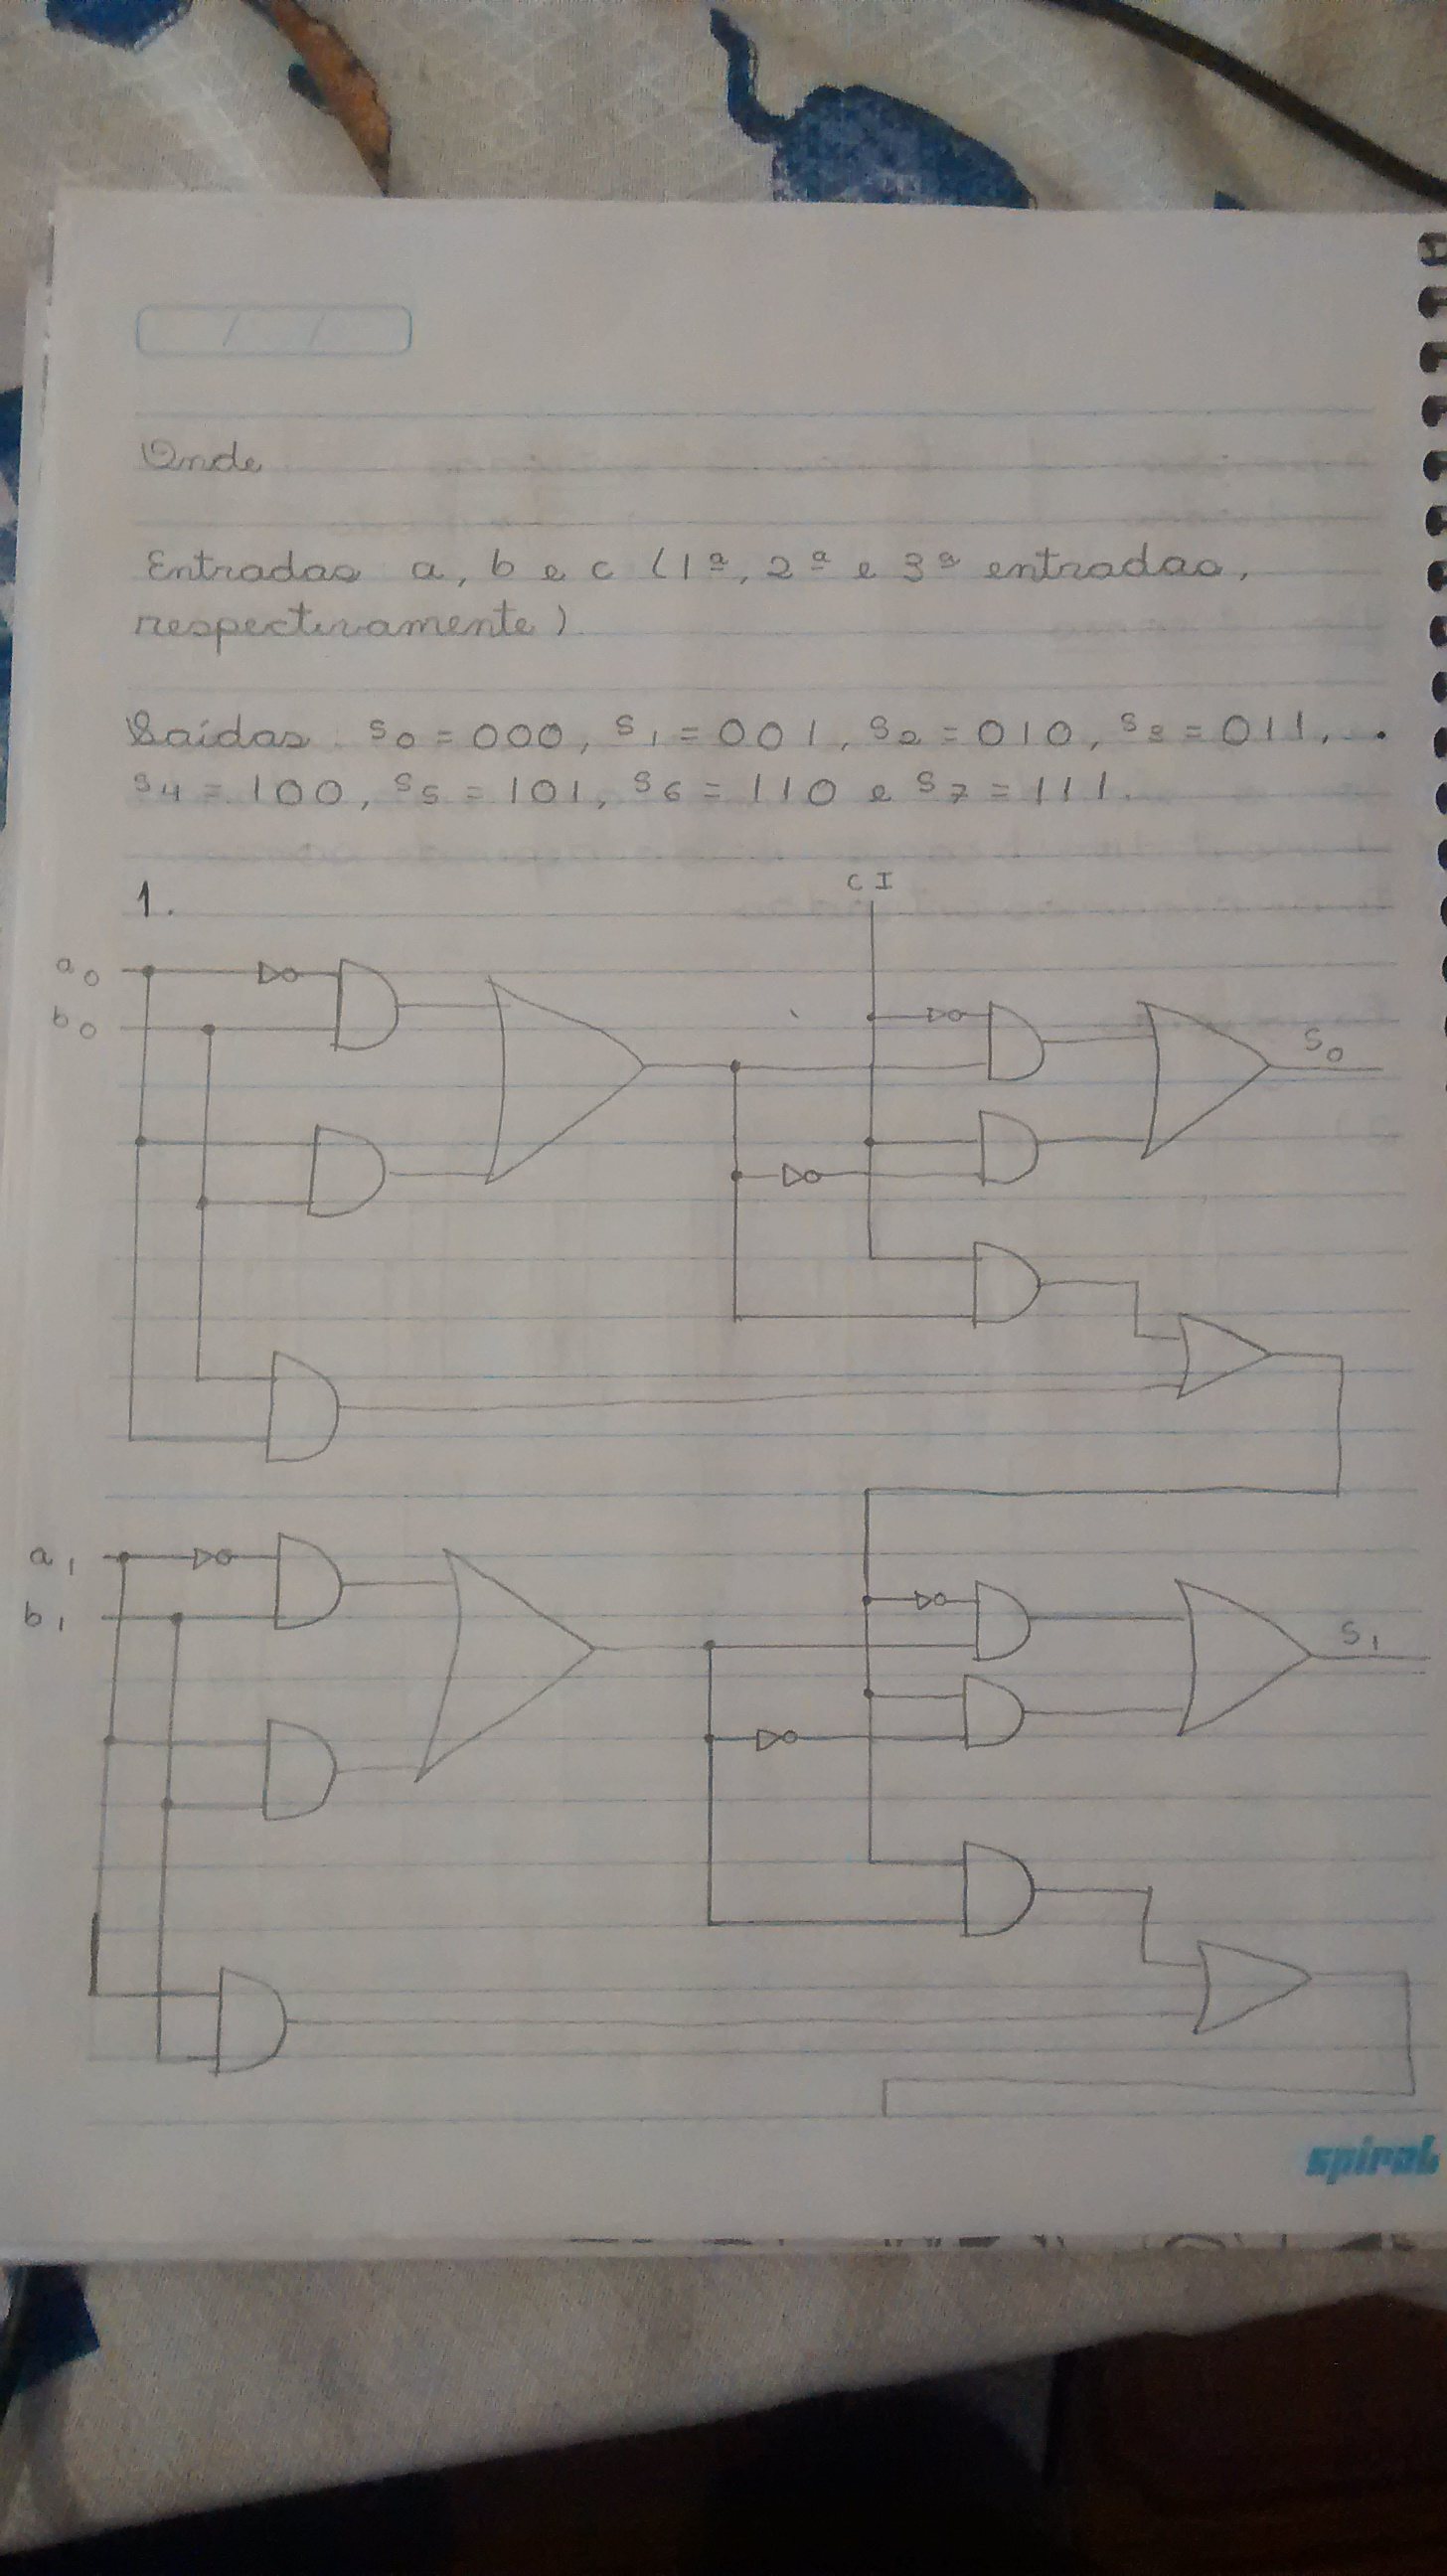 Onde
Entradas a, b e c (1ª, 2ª e 3ª entradas,
respectivamente)
Saídas: s0 = 000, s1 = 001, s2 = 010, s3 = 011,
s4 = 100, s5 = 101, s6 = 110 e s7 = 111.
CI
1.
a0
b0
s0
a1
b1
s1
spiral